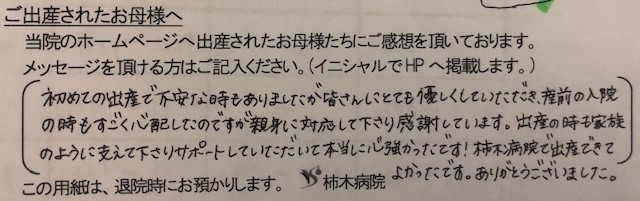 ご出産されたお母様へ
当院のホームページへ出産されたお母様たちにご感想を頂いております。
メッセージを頂ける方はご記入ください。(イニシャルでHPへ掲載します。)
初めての出産で不安な時もありましたが皆さんにとても優しくしていただき、産前の入院
の時もすごく心配したのですが親身に対応して下さり感謝しています。出産の時も家族
のように支えて下さりサポートしていただいて本当に心強かったです!柿木病院で出産できて
よかったです。ありがとうございました。
この用紙は、退院時にお預かりします。 柿木病院